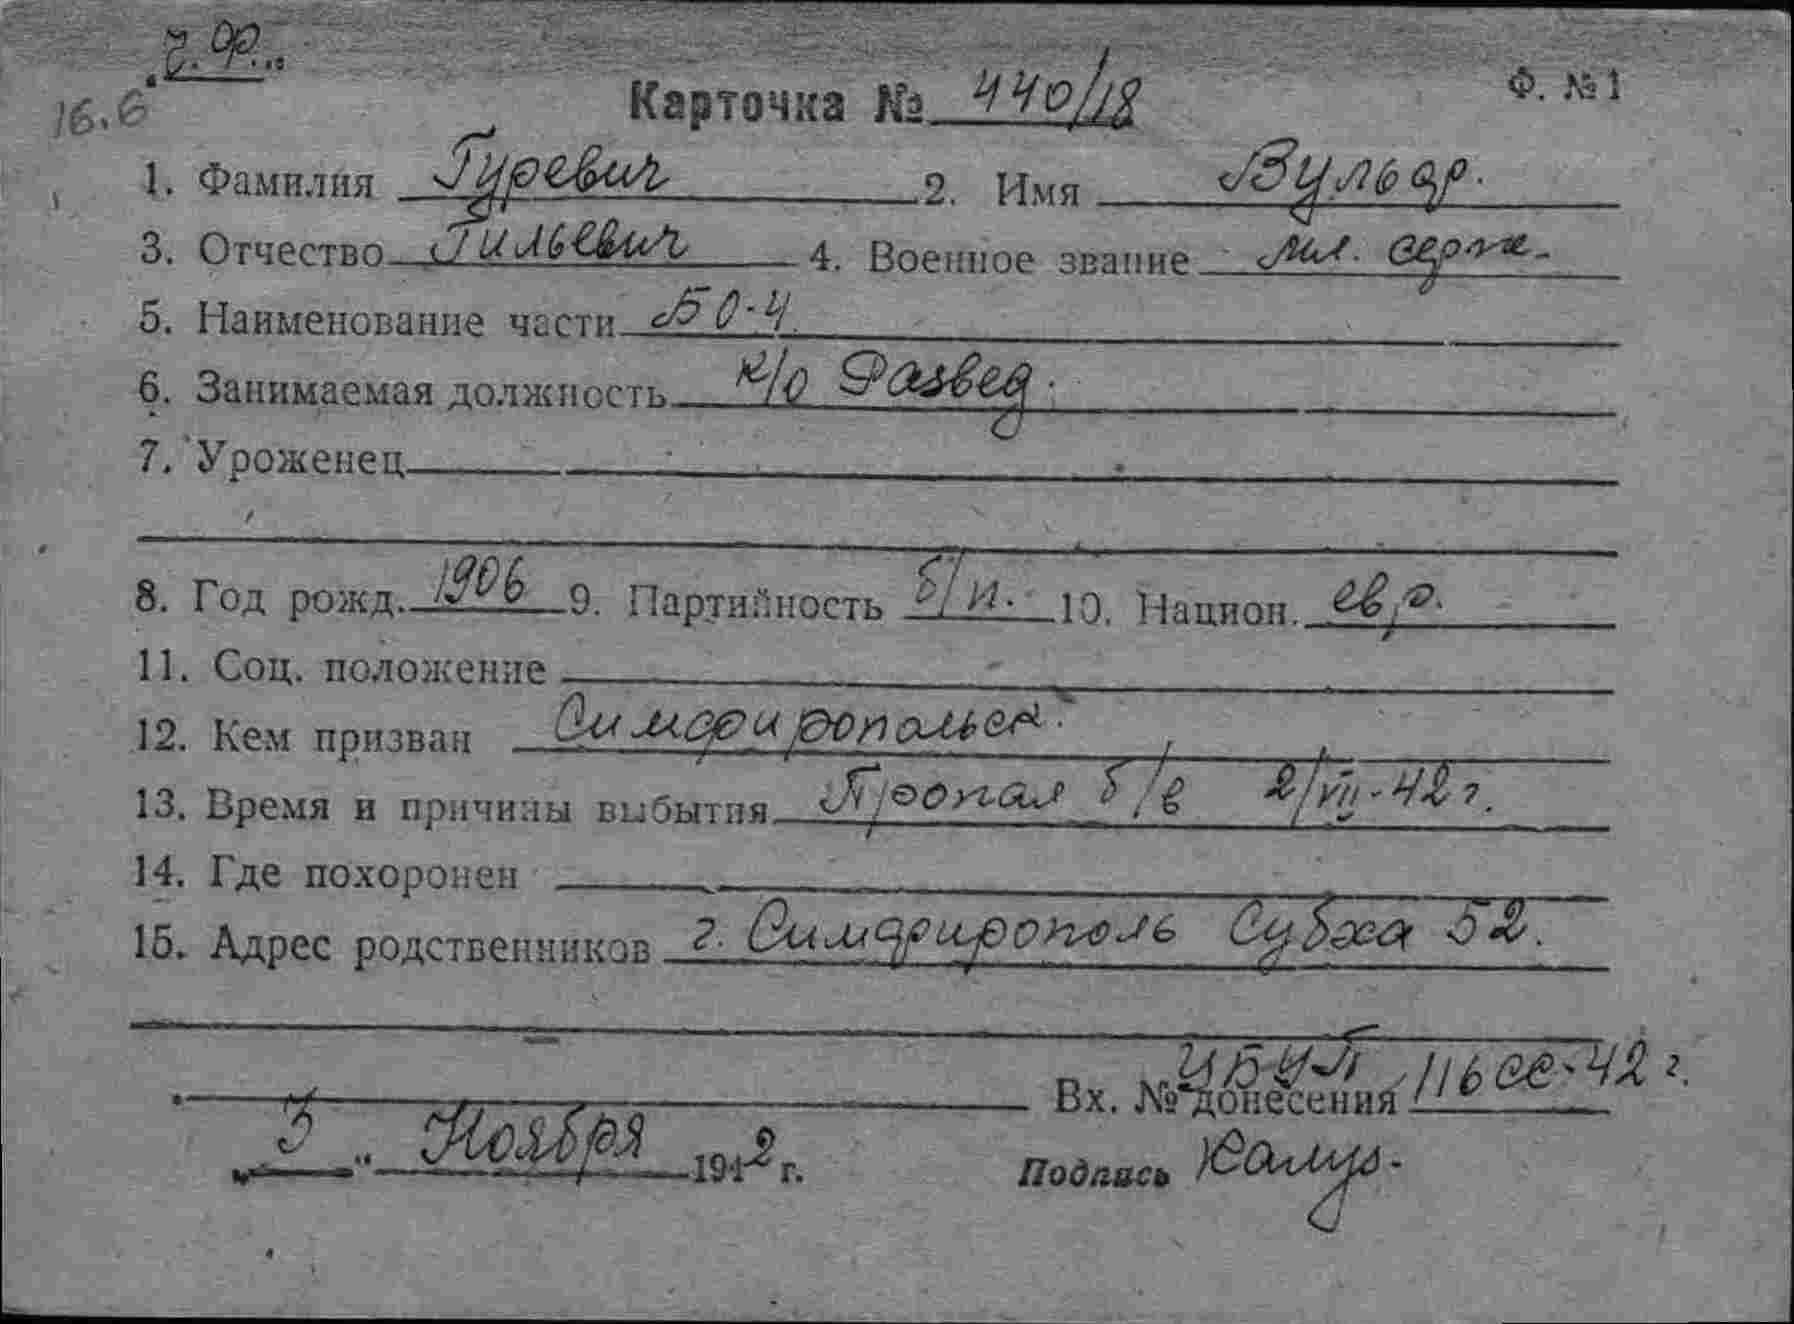 ч. ф.
16.6
Карточка № 440/18 Ф. №1
1. Фамилия Гуревич 2. Имя Вульф.
3. Отчество Гильевич 4. Военное звание мл. серж.
5. Наименование части БО-4
6. Занимаемая должность к/о Развед.
7. Уроженец
8. Год рожд. 1906 9. Партийность б/п. 10. Национ. евр.
11. Соц. положение
12. Кем призван Симфиропольск.
13. Время и причины выбытия Пропал б/в 2/VII-42 г.
14. Где похоронен
15. Адрес родственников г. Симфирополь Субха 52.
Вх. № донесения ЦБУП 116 сс-42 г.
„3" Ноября 1942 г. Подпись